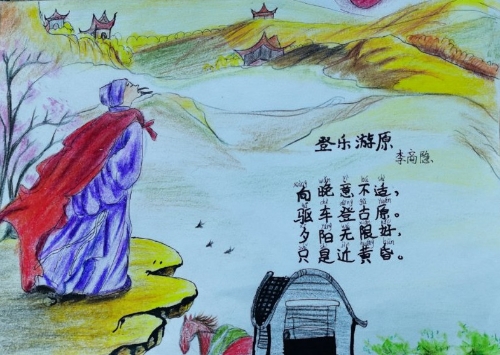 登乐游原
李商隐
向晚意不适，
驱车登古原。
夕阳无限好，
只是近黄昏。